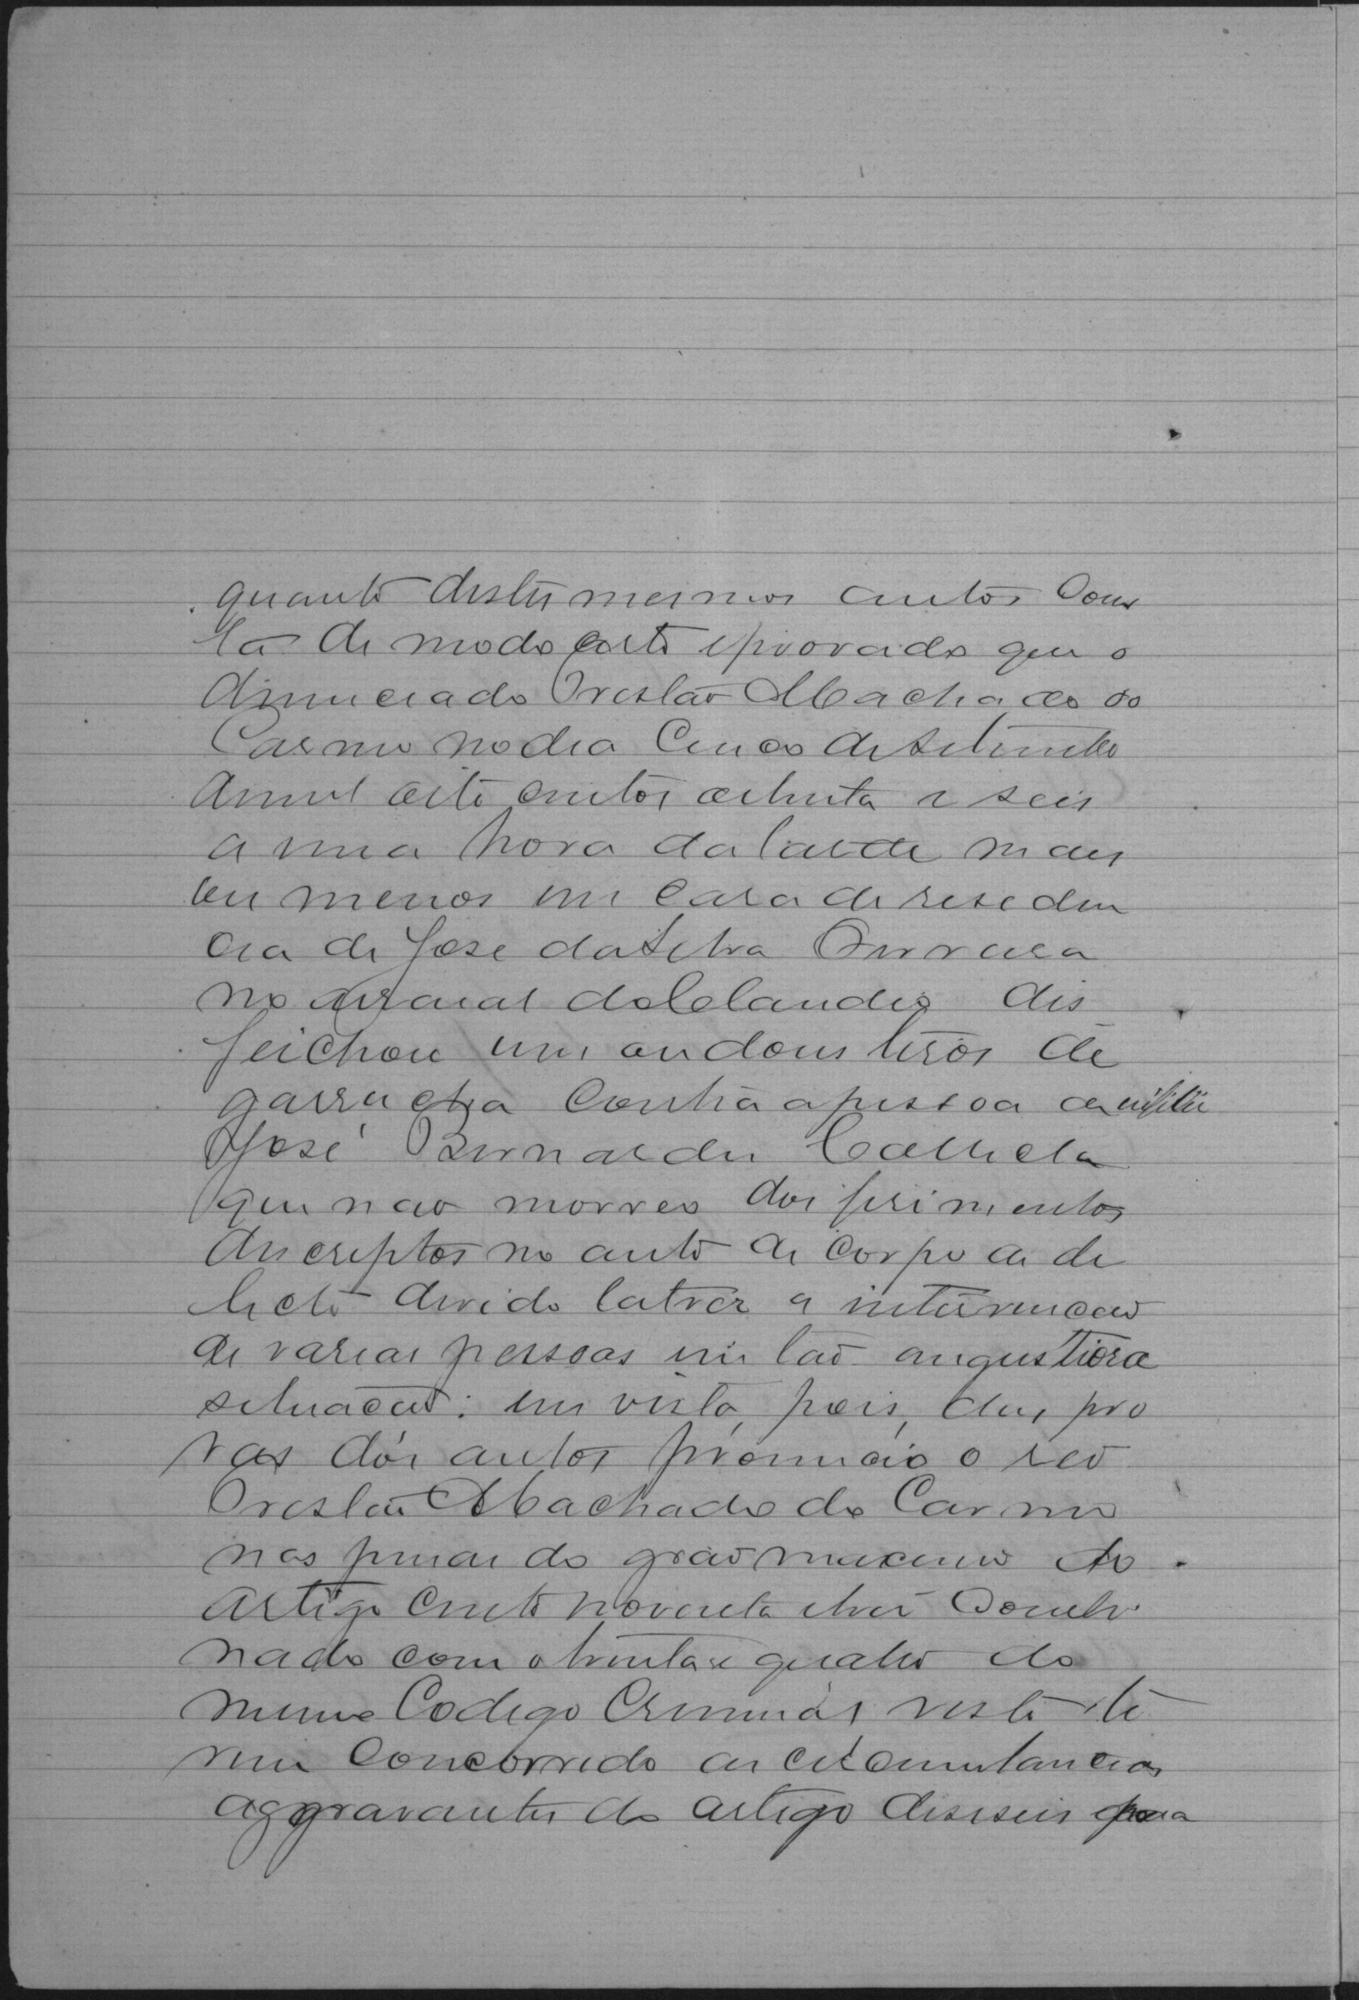 quanto destes mesmos autos cons
ta de modo certo e provado que o
denunciado Prestão Machado do
Carmo no dia cinco de Setembro
de mil oito centos oitenta e seis
a uma hora da tarde mais
ou menos em casa de residen
cia de José da Silva
no arraial do Claudio dis
feichou um ou dous tiros de
garrucha contra a pessoa de
José Bernardes
que nao morreo dos ferimentos
descriptos no auto de corpo de de
licto devido talvez a intervencao
de varias pessoas em tão angustiosa
situacão: em vista, pois, das pro
vas dos autos pronuncio o reo
Prestão Machado do Carmo
nas penas do grao maximo do
artigo cento noventa e tres combi
nado com o trinta e quatro do
mesmo Codigo Criminal visto te
rem concorrido as circumstancias
aggravantes do artigo deseseis para